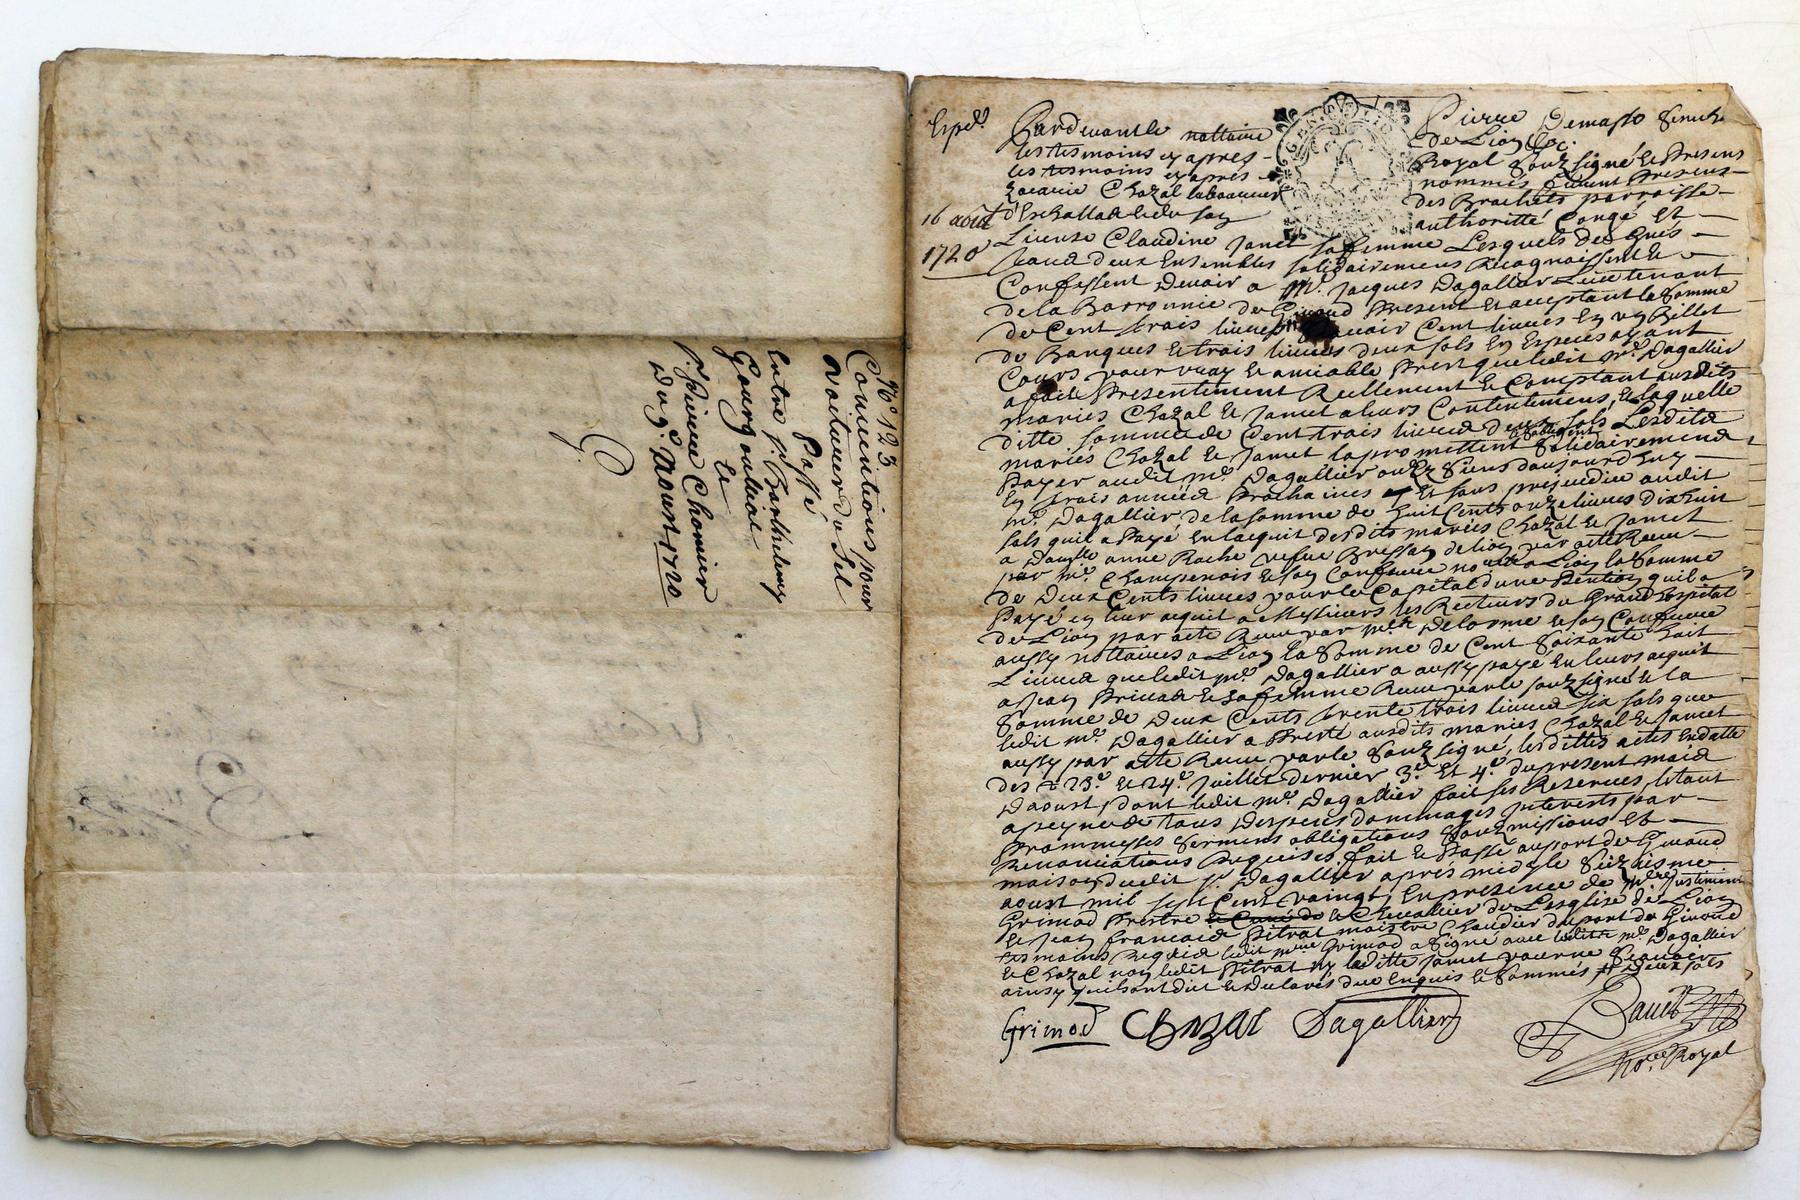 No 123
Conventions pour
voiturer du Sel
Passé
Entre sr. Barthelemy
Gourgouliat
Et
sr. pierre Chomier
Du 9e. Aoust 1720
Expedié
16 août
1720
Pardevant le nottaire
les tesmoins cy apres
les tesmoins cy aprés
Chazal laboureur
Pierre Demasso Senechal
de Lion &c.
Royal Soubzsigné Et Presens
nommés furent Presens
des Brachets parroisse
authoritté Congé Et
Licence Claudine Janet sa femme Lesquels de Grés
deux Ensembles solidairement Recognoissent Et
Confessent Devoir a Mr. Jacques Dagallier Lieutenant
de la Barronnie de Giraud Present Et acceptant la Somme
de Cent trois livres scavoir Cent livres En un Billet
de Banques Et trois livres deux sols En Especes ayant
Cours pour vray Et amiable Prest que ledit Mr. Dagallier
a fait Presentement Reellement Et Comptant ausdits
mariés Chazal Et Janet a leurs Contentement, Et laquelle
ditte somme de Cent trois livres deux sols Lesdits
mariés Chazal Et Janet la promettent solidairement
Payer audit Mr. Dagallier ou Es Siens daujourdhuy
En trois années Prochaines Et sans prejudice audit
Mr. Dagallier, de la somme de huit Cents onze livres dixhuit
sols quil a Payé En lacquit desdits mariés Chazal Et Janet
a anne Roche vefue Bressan de lion par acte Receu
par Me. Champenois Et son Confrere nottes a Lion la Somme
de Deux Cents livres pour le Capital dune Pention quil a
Payé en leur acquit a Messieurs les Recteurs du Grand hospital
de Lion par acte Receu par Me Delorme Et son Confrere
aussy nottaires a Lion la Somme de Cent Soixante huit
Livres que ledit Mr. Dagallier a aussy payé En leurs acquit
a Jean Privat Et sa femme Receu par le soubzsigné Et la
Somme de Deux Cents trente trois livres six sols que
ledit Mr. Dagallier a Presté ausdits mariés Chazal Et Janet
aussy par acte Receu par le Soubzsigné, lesdittes actes En datte
des 23e. Et 24e. Juillet dernier 3e. Et 4e. du present mois
Daoust, dont ledit Mr. Dagallier fait ses Reserves, le tout
a peyne de tous Despens dommages interests par
Prommesses Serment obligations Soubzmissions Et
Renonciations Requises. fait Et Passé au port de Giraud
maison dudit sr. Dagallier aprés midy le Seiziesme
aoust mil sept Cent vaingt, En presence de
Grimod Prestre et Curé de Et Chevallier de Lesglise de Lion
Et Jean françois Pitrat maistre Chaudier du port de Giraud
tesmoins Requis ledit Grimod a Signé avec ledit Mr. Dagallier
Et Chazal non ledit Pitrat ny laditte Janet pour ne Scavoir
ainsy quils ont dit Et Declarés de ce Enquis Et Sommés deux sols
Grimod Chazal Dagallier
Royal